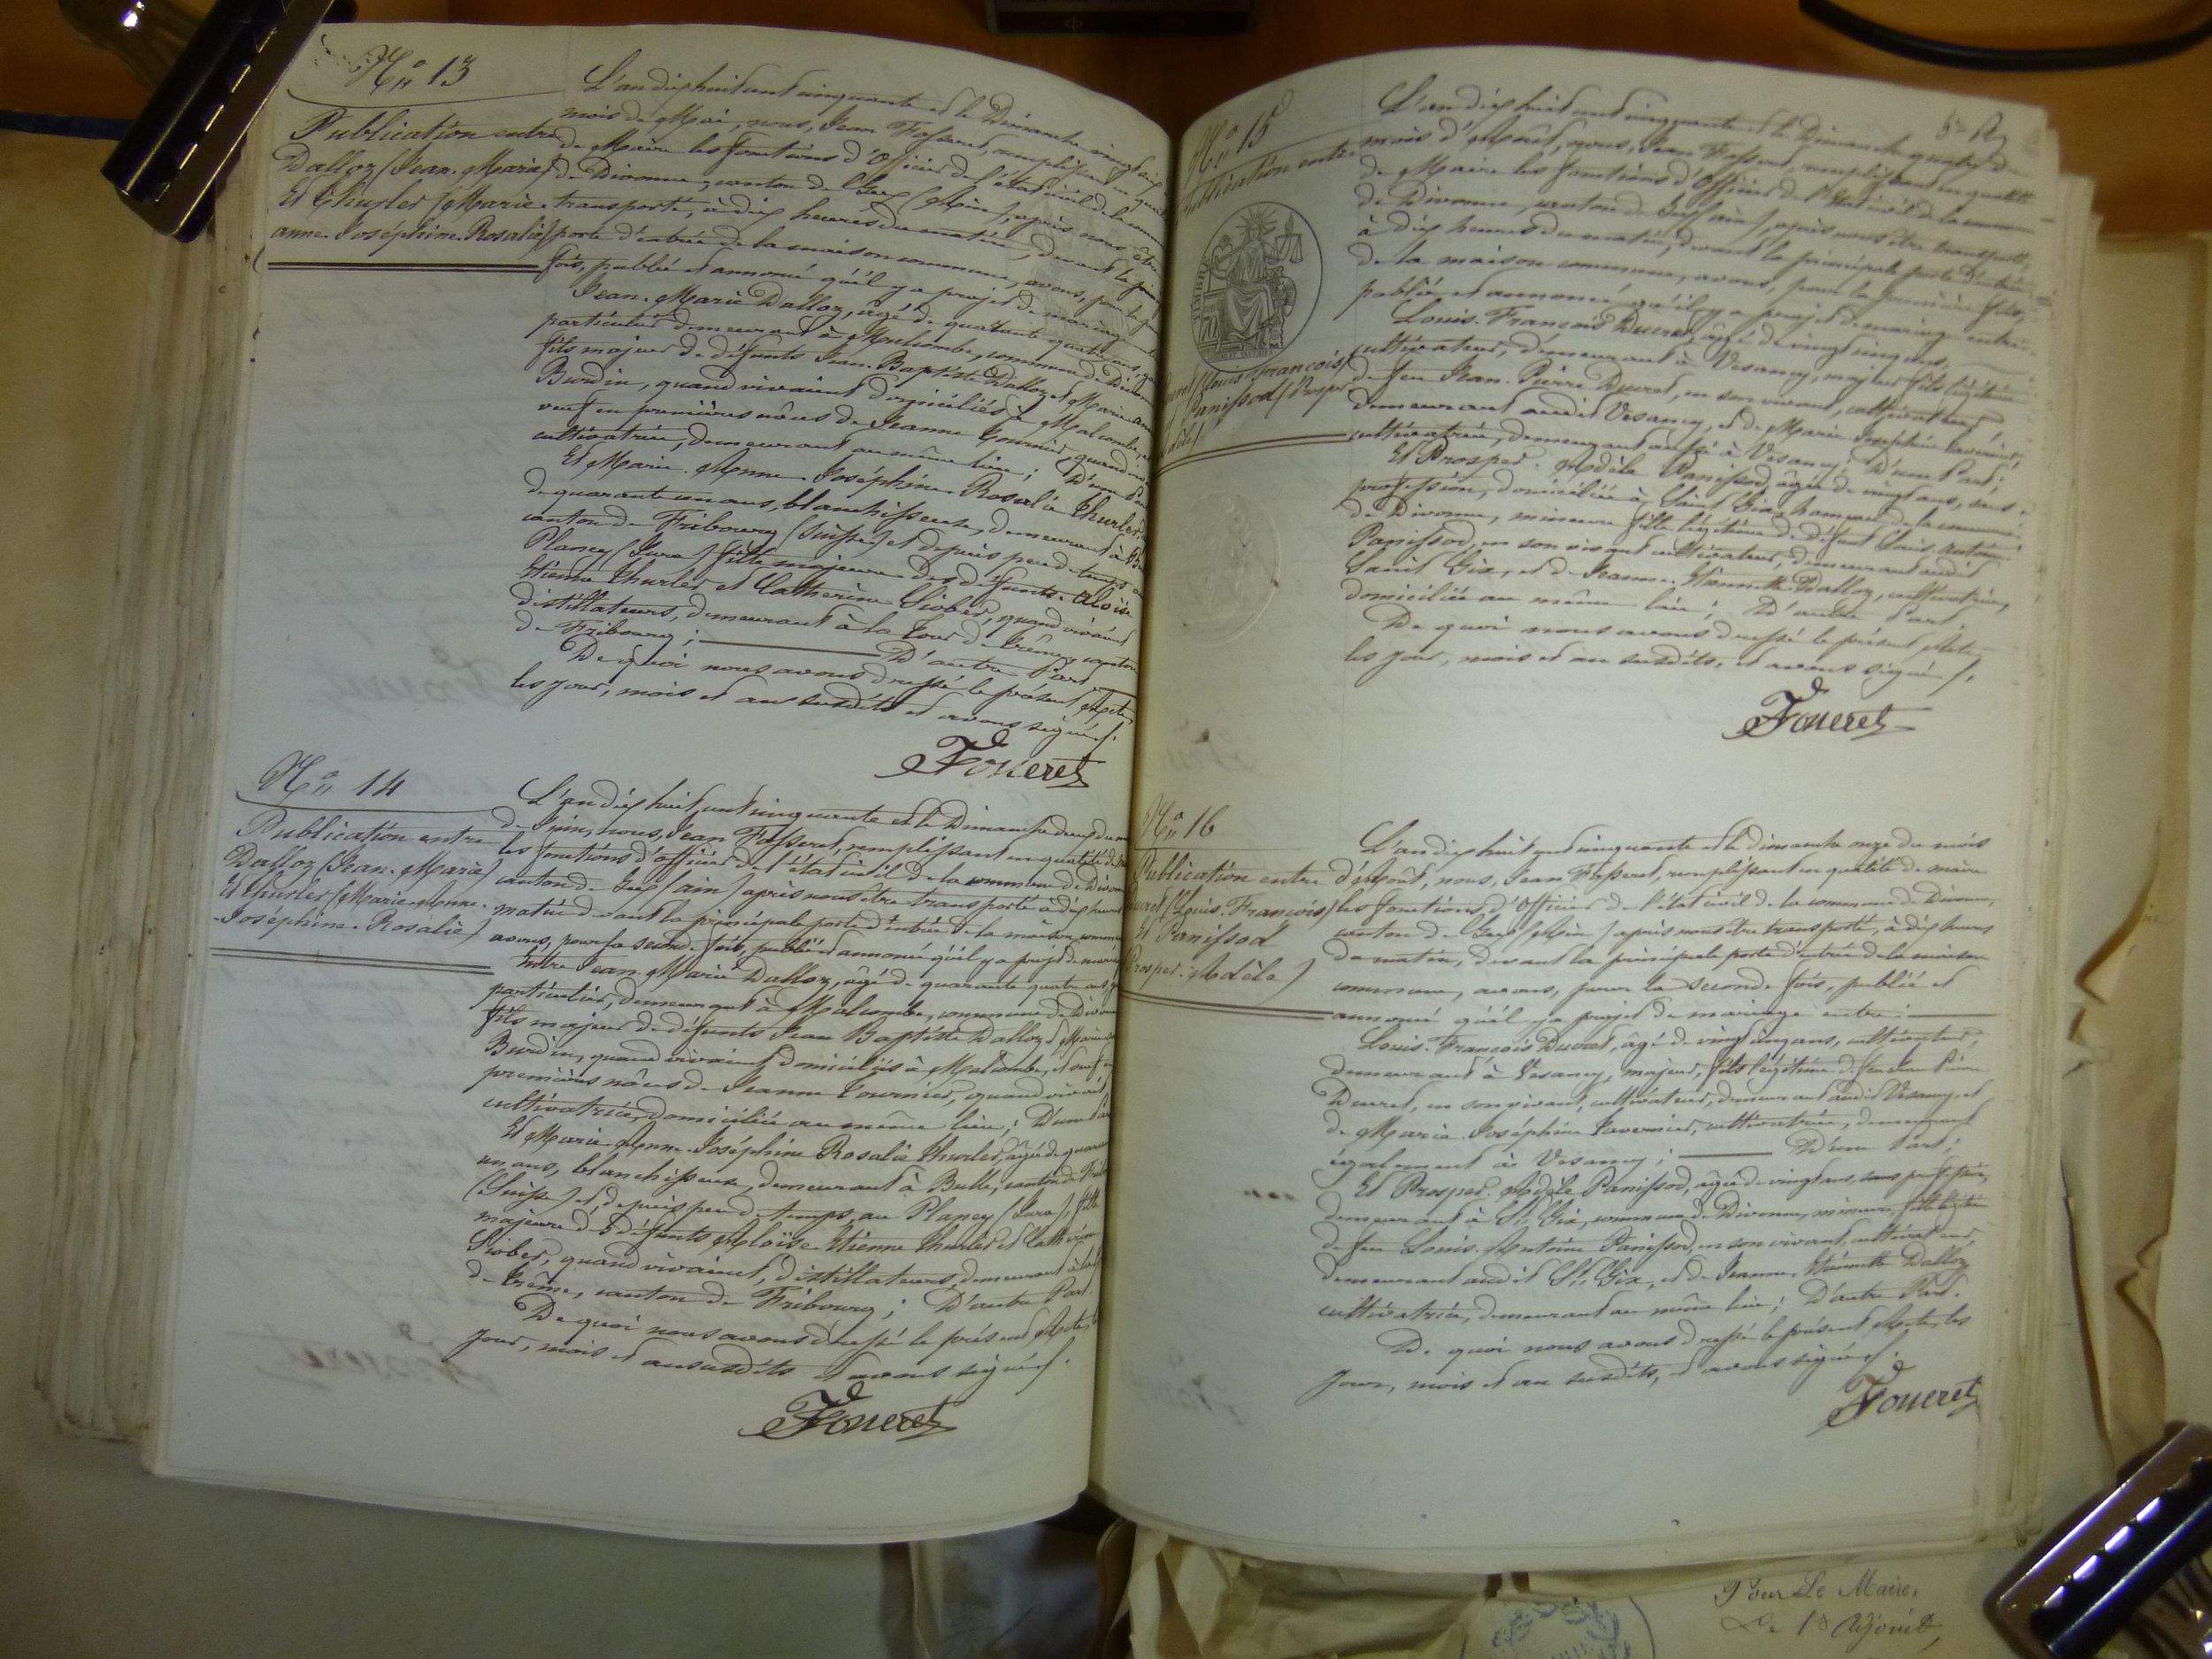 Nº 13
Publication entre
Dalloz (Jean-Marie)
Et Thurler (Marie-
anne-Joséphine-Rosalie)
L'an dix huit cent cinquante et le Dimanche vingt six
mois de Mai, nous, Jean Fosseret, remplissant en
de Maire les fonctions d'Officier de l'état civil de la
de Divonne, canton de Gex (Ain), après nous être
transporté, à dix heures du matin, devant la
porte d'entrée de la maison commune, avons, pour la
fois, publié et annoncé qu'il y a projet de mariage
Jean-Marie Dalloz, âgé de quarante quatre ans,
particulier demeurant à Malcombe, commune de
fils majeur de défunts Jean-Baptiste Dalloz et Marie
Burdin, quand vivaient domiciliés à Malcombe, et
veuf en premières nôces de Jeanne Tournier, quand
cultivatrice, demeurant au même lieu; D'une
Et Marie-Anne-Joséphine Rosalie Thurler,
de quarante un ans, blanchisseuse, demeurant à
canton de Fribourg (Suisse) et depuis peu de temps au
Planey (Jura) fille majeure des défunts Aloïse
Etienne Thurler et Catherine Siober, quand vivaient
distillateurs, demeurant à la Tour de Trême, canton
de Fribourg; D'autre Part.
De quoi nous avons dressé le présent Acte,
les jour, mois et an susdits et avons signé.
Foueret
Nº 14
Publication entre
Dalloz (Jean-Marie)
Et Thurler (Marie-Anne-
Joséphine-Rosalie)
L'an dix huit cent cinquante et le Dimanche deux du
de Juin, nous, Jean Fosseret, remplissant en qualité de
les fonctions d'officier de l'état civil de la commune de
canton de Gex (ain) après nous être transporté à dix heures
matin devant la principale porte d'entrée de la maison
avons, pour la seconde fois, publié et annoncé qu'il y a projet de
Entre Jean-Marie Dalloz, âgé de quarante quatre ans,
particulier, demeurant à Malcombe, commune de
fils majeur de défunts Jean Baptiste Dalloz et
Burdin, quand vivaient domiciliés à Malcombe, et veuf en
premières nôces de Jeanne Tournier, quand vivait
cultivatrice, domiciliée au même lieu; D'une
Et Marie-Anne-Joséphine Rosalie Thurler, âgée de
un ans, blanchisseuse, demeurant à Bulle, canton de
(Suisse) et depuis peu de temps au Planey (Jura), fille
majeure des défunts Aloïse-Etienne Thurler et
Siober, quand vivaient, distillateurs, demeurant à la
de Trême, canton de Fribourg; D'autre Part.
De quoi nous avons dressé le présent Acte, les
jour, mois et an susdits et avons signé.
Foueret
Nº 15
Publication entre
(Louis-François)
Panissod (Prosper
L'an dix huit cent cinquante et le Dimanche quatre du
mois d'Août, nous, Jean Fosseret, remplissant en qualité
de Maire les fonctions d'Officier de l'Etat civil de la commune
de Divonne, canton de Gex (ain), après nous être transporté,
à dix heures du matin, devant la principale porte d'entrée
de la maison commune, avons, pour la première fois,
publié et annoncé qu'il y a projet de mariage entre
Louis-François Ducret, âgé de vingt cinq ans,
cultivateur, demeurant à Vesancy, majeur fils légitime
de feu Jean-Pierre Ducret, en son vivant, cultivateur,
demeurant audit Vesancy, et de Marie-Joséphine Tavernier,
cultivatrice, demeurant aussi à Vesancy; D'une Part;
Et Prosper-Adèle Panissod, âgée de vingt ans, sans
profession, domiciliée à Saint Gix, hameau de la commune
de Divonne, mineure fille légitime de défunt Louis Antoine
Panissod, en son vivant cultivateur, demeurant audit
Saint Gix, et de Jeanne-Etiennette Dalloz, cultivatrice,
domiciliée au même lieu; D'autre Part.
De quoi nous avons dressé le présent Acte,
les jour, mois et an susdits, et avons signé.
Foueret
Nº 16
Publication entre
Ducret (Louis-François)
Et Panissod
Prosper-Adèle)
L'an dix huit cent cinquante et le dimanche onze du mois
d'Août, nous, Jean Fosseret, remplissant en qualité de maire
les fonctions d'Officier de l'état civil de la commune de Divonne,
canton de Gex (Ain) après nous être transporté, à dix heures
du matin, devant la principale porte d'entrée de la maison
commune, avons, pour la seconde fois, publié et
annoncé qu'il y a projet de mariage entre:
Louis-François Ducret, âgé de vingt cinq ans, cultivateur,
demeurant à Vesancy, majeur, fils légitime de feu Jean Pierre
Ducret, en son vivant, cultivateur, demeurant audit Vesancy, et
de Marie-Joséphine Tavernier, cultivatrice, demeurant
également à Vesancy; D'une Part;
Et Prosper-Adèle Panissod, âgée de vingt ans, sans profession,
demeurant à St. Gix, commune de Divonne, mineure, fille légitime
de feu Louis-Antoine Panissod, en son vivant, cultivateur,
demeurant audit St. Gix, et de Jeanne-Etiennette Dalloz
cultivatrice, demeurant au même lieu; D'autre Part.
De quoi nous avons dressé le présent Acte, les
jour, mois et an susdits, et avons signé.
Foueret
Pour Le Maire,
Le 1er Adjoint,